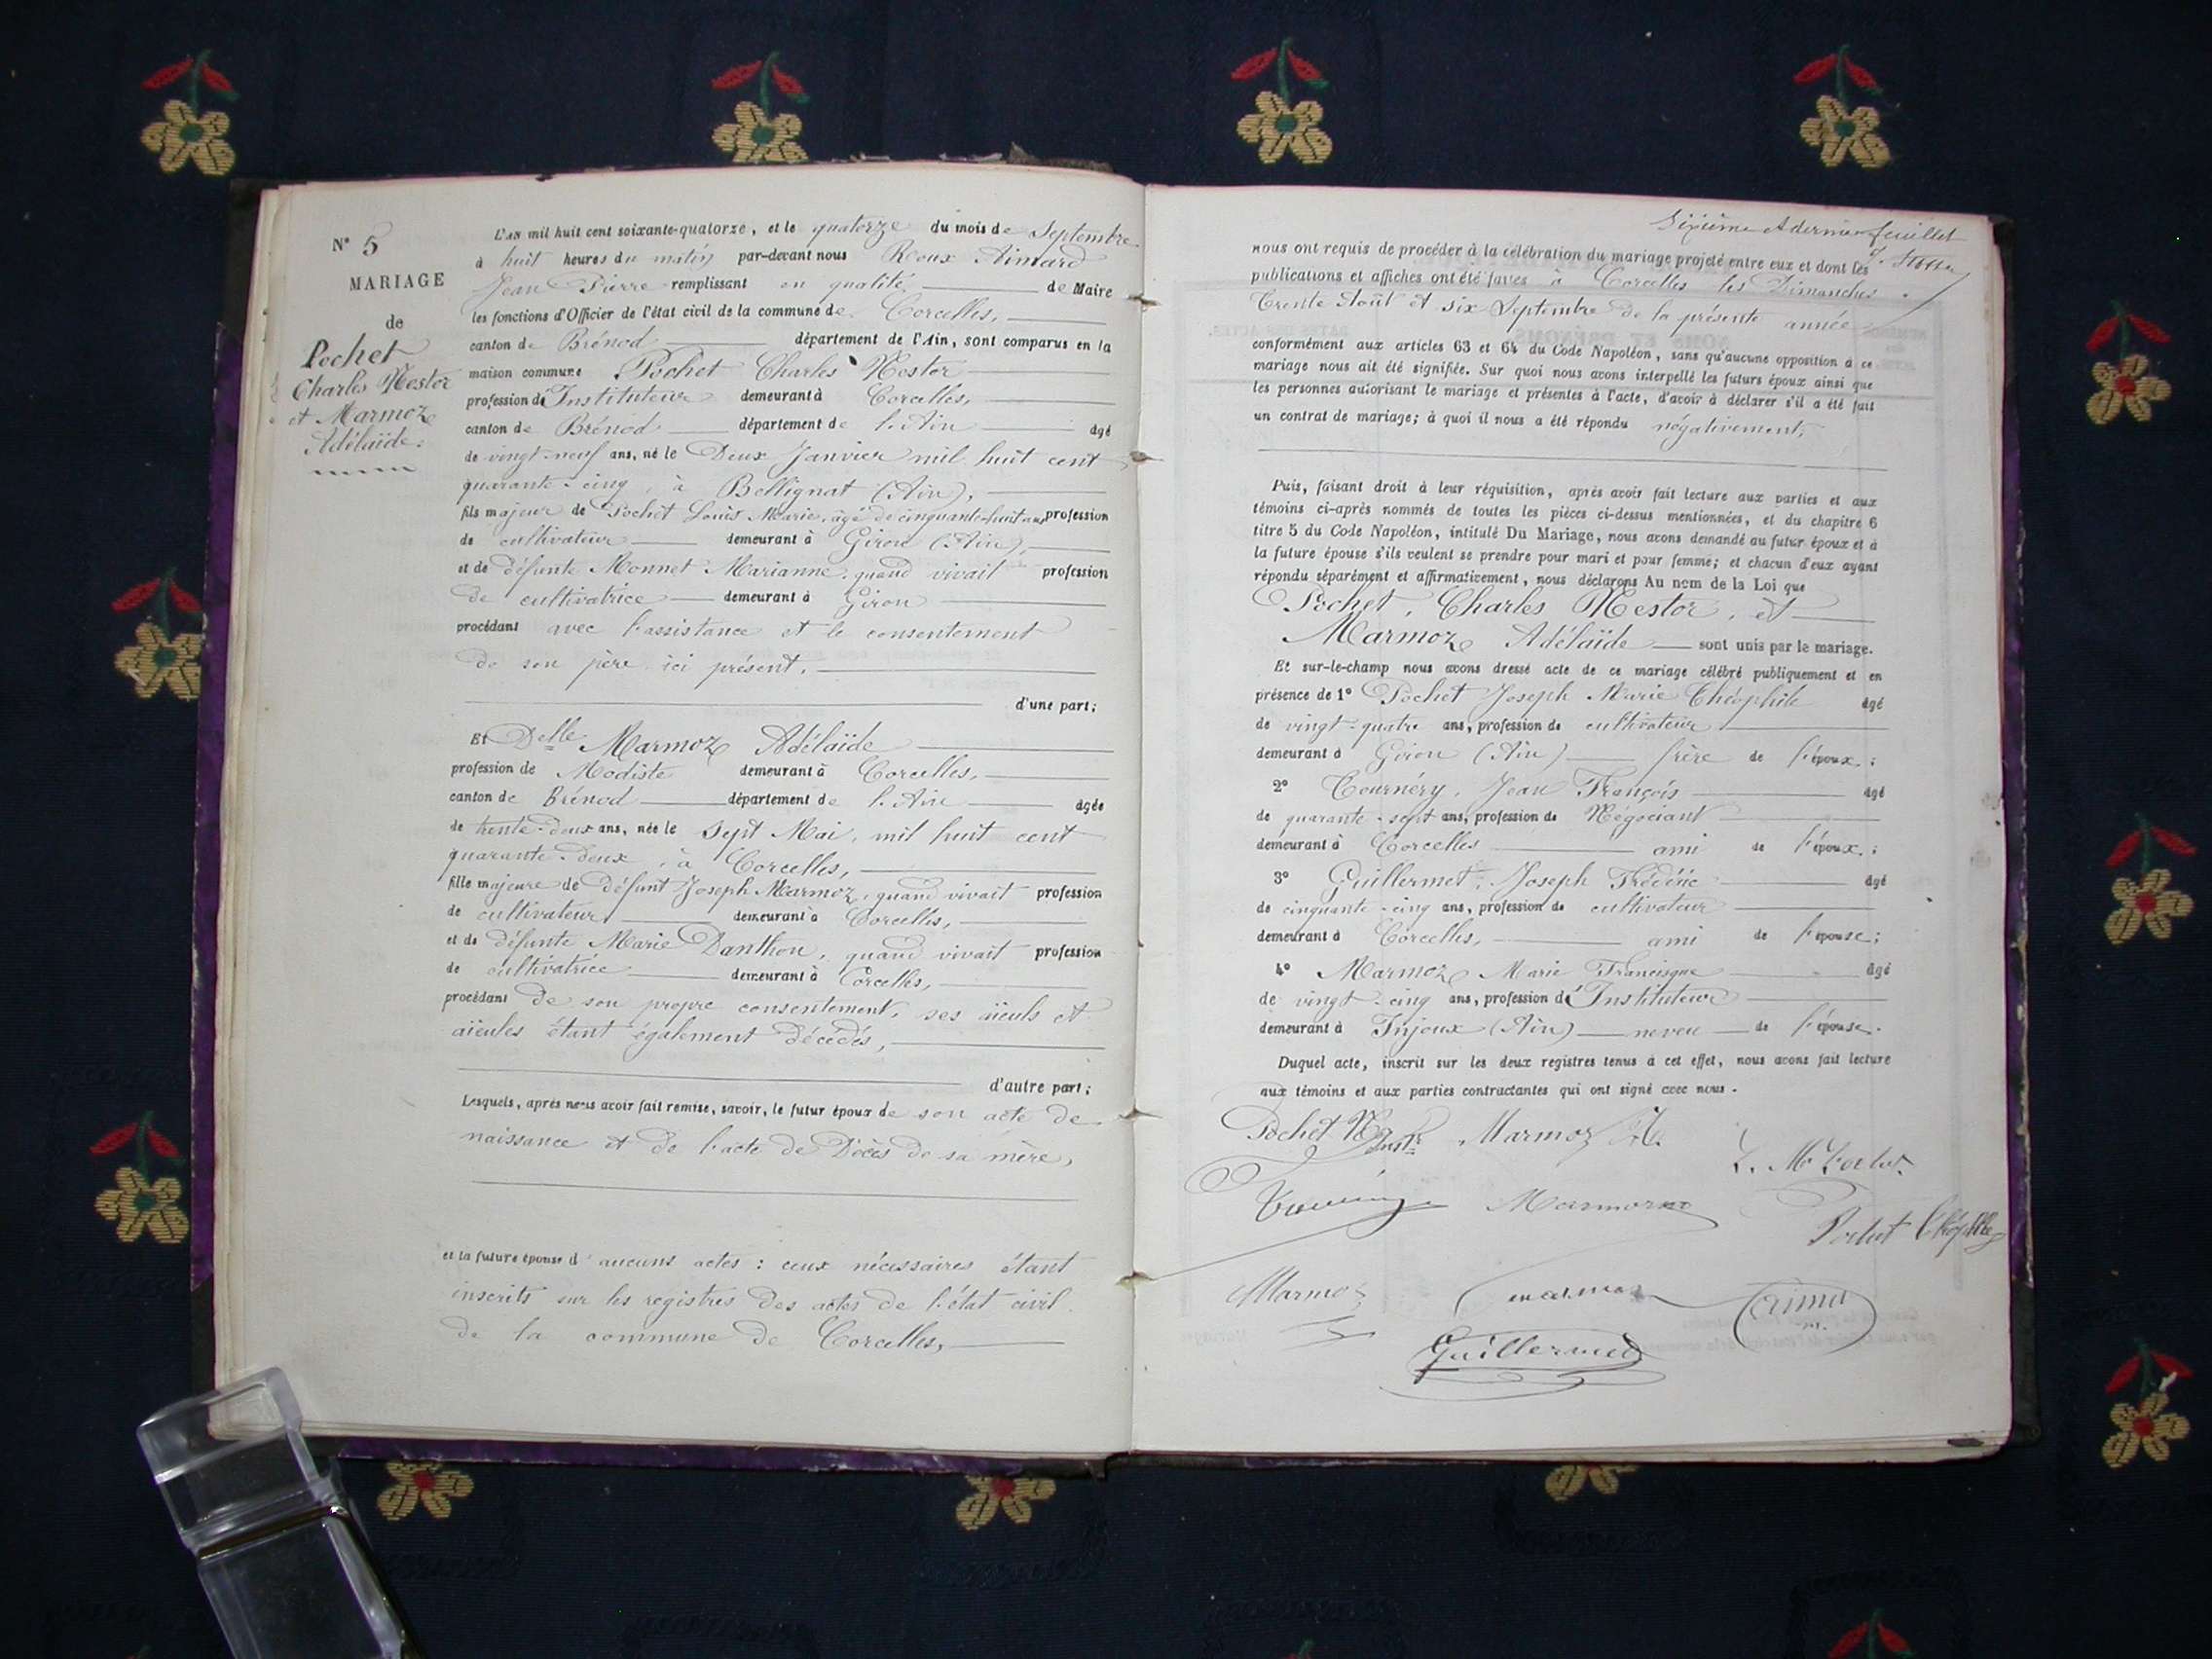 N° 5
MARIAGE
de
Pochet
Charles Nestor
et Marmoz
Adélaïde.
L'AN mil huit cent soixante-quatorze, et le quatorze du mois de Septembre
à huit heures du matin par-devant nous Roux Aimard
Jean Pierre remplissant en qualité de Maire
les fonctions d'Officier de l'état civil de la commune de Corcelles,
canton de Brénod département de l'Ain, sont comparus en la
maison commune Pochet Charles Nestor
profession d'Instituteur demeurant à Corcelles,
canton de Brénod département de l'Ain âgé
de vingt-neuf ans, né le Deux Janvier mil huit cent
quarante-cinq, à Bellignat (Ain),
fils majeur de Pochet Louis Marie, âgé de cinquante-huit ans profession
de cultivateur demeurant à Giron (Ain),
et de défunte Monnet Marianne, quand vivait profession
de cultivatrice demeurant à Giron
procédant avec l'assistance et le consentement
de son père ici présent.
d'une part;
Et Delle Marmoz Adélaïde
profession de Modiste demeurant à Corcelles,
canton de Brénod département de l'Ain âgée
de trente-deux ans, née le Sept Mai, mil huit cent
quarante-deux, à Corcelles,
fille majeure de défunt Joseph Marmoz, quand vivait profession
de cultivateur demeurant à Corcelles,
et de défunte Marie Danthon, quand vivait profession
de cultivatrice demeurant à Corcelles,
procédant de son propre consentement, ses aïeuls et
aïeules étant également décédés,
d'autre part;
Lesquels, après nous avoir fait remise, savoir, le futur époux de son acte de
naissance et de l'acte de Décès de sa mère,
et la future épouse d'aucuns actes : ceux nécessaires étant
inscrits sur les registres des actes de l'état civil
de la commune de Corcelles,
Sixième et dernier feuillet
nous ont requis de procéder à la célébration du mariage projeté entre eux et dont les
publications et affiches ont été faites à Corcelles les Dimanches
Trente Août et six Septembre de la présente année
conformément aux articles 63 et 64 du Code Napoléon, sans qu'aucune opposition à ce
mariage nous ait été signifiée. Sur quoi nous avons interpellé les futurs époux ainsi que
les personnes autorisant le mariage et présentes à l'acte, d'avoir à déclarer s'il a été fait
un contrat de mariage; à quoi il nous a été répondu négativement,
Puis, faisant droit à leur réquisition, après avoir fait lecture aux parties et aux
témoins ci-après nommés de toutes les pièces ci-dessus mentionnées, et du chapitre 6
titre 5 du Code Napoléon, intitulé Du Mariage, nous avons demandé au futur époux et à
la future épouse s'ils veulent se prendre pour mari et pour femme; et chacun d'eux ayant
répondu séparément et affirmativement, nous déclarons Au nom de la Loi que
Pochet, Charles Nestor, et
Marmoz Adélaïde sont unis par le mariage.
Et sur-le-champ nous avons dressé acte de ce mariage célébré publiquement et en
présence de 1° Pochet Joseph Marie Théophile âgé
de vingt-quatre ans, profession de cultivateur
demeurant à Giron (Ain) frère de l'époux;
2° Tournéry, Jean François âgé
de quarante-sept ans, profession de Négociant
demeurant à Corcelles ami de l'époux;
3° Guillermet, Joseph Frédéric âgé
de cinquante-cinq ans, profession de cultivateur
demeurant à Corcelles, ami de l'épouse;
4° Marmoz Marie Francisque âgé
de vingt-cinq ans, profession d'Instituteur
demeurant à Injoux (Ain) neveu de l'épouse.
Duquel acte, inscrit sur les deux registres tenus à cet effet, nous avons fait lecture
aux témoins et aux parties contractantes qui ont signé avec nous.
Pochet N Instr Marmoz A.
L. M. Pochet
Marmoz
Pochet Théophile
Marmoz
Guillermet